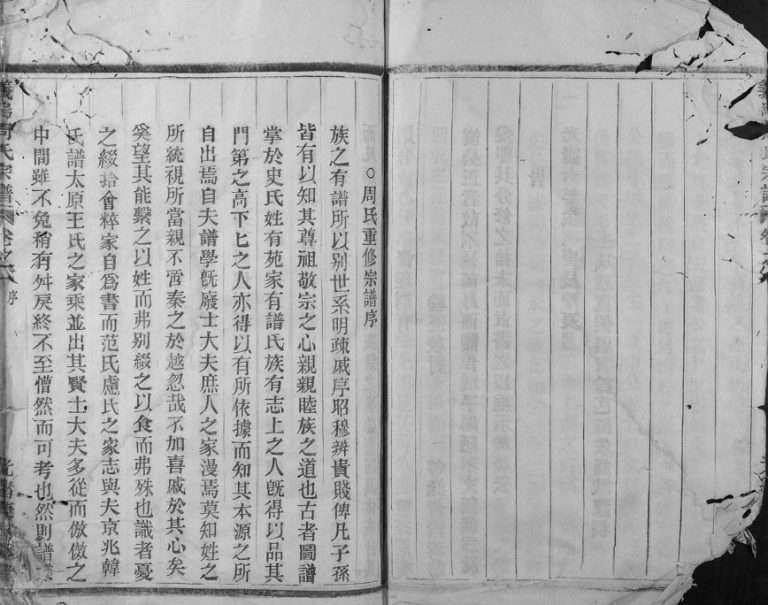 周氏重修宗譜序
族之有譜所以别世系明疎戚序昭穆辨貴賤俾凡子孫
皆有以知其尊祖敬宗之心親親睦族之道也古者圖譜
掌於史氏姓有苑家有譜氏族有志上之人旣得以品其
門第之高下匕之人亦得以有所依據而知其本源之所
自出焉自夫譜學旣廢士大夫庶人之家漫焉莫知姓之
所統視所當親不啻秦之於越忽哉不加喜戚於其心矣
奚望其能繫之以姓而弗别綴之以食而弗殊也識者憂
之綴拾會粹家自爲書而范氏盧氏之家志與夫京兆韓
氏譜太原王氏之家乘並出其賢士大夫多從而倣倣之
中間雖不免稍有舛戾終不至懵然而可考也然則譜
義烏周氏宗譜 卷之 序